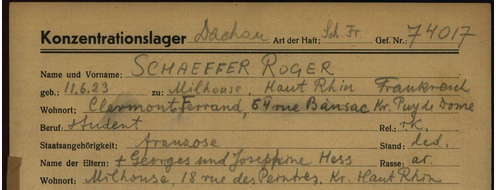 Konzentrationslager Dachau Art der Haft: Sch. Fr. Gef. Nr.: 74017
Name und Vorname: SCHAEFFER ROGER
geb.: 11.6.23 zu: Milhouse, Haut Rhin Frankreich
Wohnort: Clermont Ferrand, 69 rue Bansac Kr. Puy de Dome
Beruf: student Rel.: r.k.
Staatsangehörigkeit: franzose Stand: led.
Name der Eltern: + Georges und Josephine Hess Rasse: ar.
Wohnort: Milhouse, 18 rue des Peintres, Kr. Haut Rhin